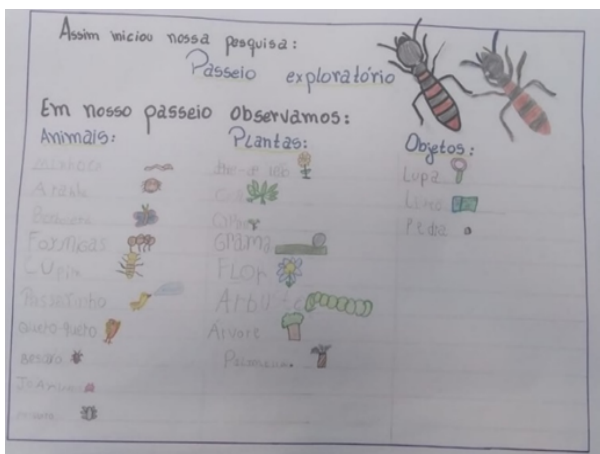 Assim iniciou nossa pesquisa:
Passeio exploratório
Em nosso passeio observamos:
Animais:
Minhoca
Aranha
Formigas
Cupim
Passarinho
quero-quero
Besouro
Joaninha
Plantas:
Grama
FLOr
Arbusto
Árvore
Objetos:
Lupa
Livro
Pedra